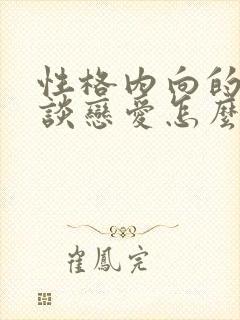 性格内向的
談戀愛怎麼
崔鳳完